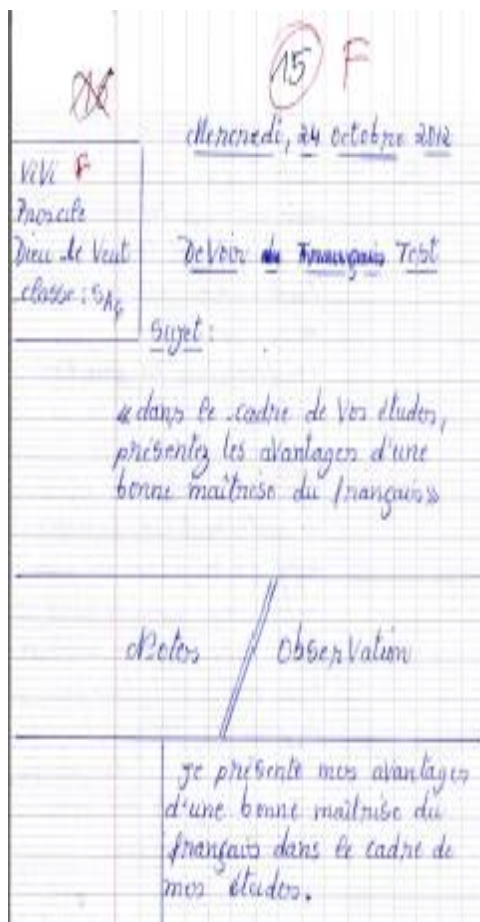 15 F
Mercredi, 24 octobre 2012
ViVi F
Dieu le Veut
classe :
Devoir de Français Test
Sujet :
« dans le cadre de Vos études,
présentez les avantages d'une
bonne maîtrise du français »
Notes / Observation
je présente mes avantages
d'une bonne maîtrise du
français dans le cadre de
mes études.